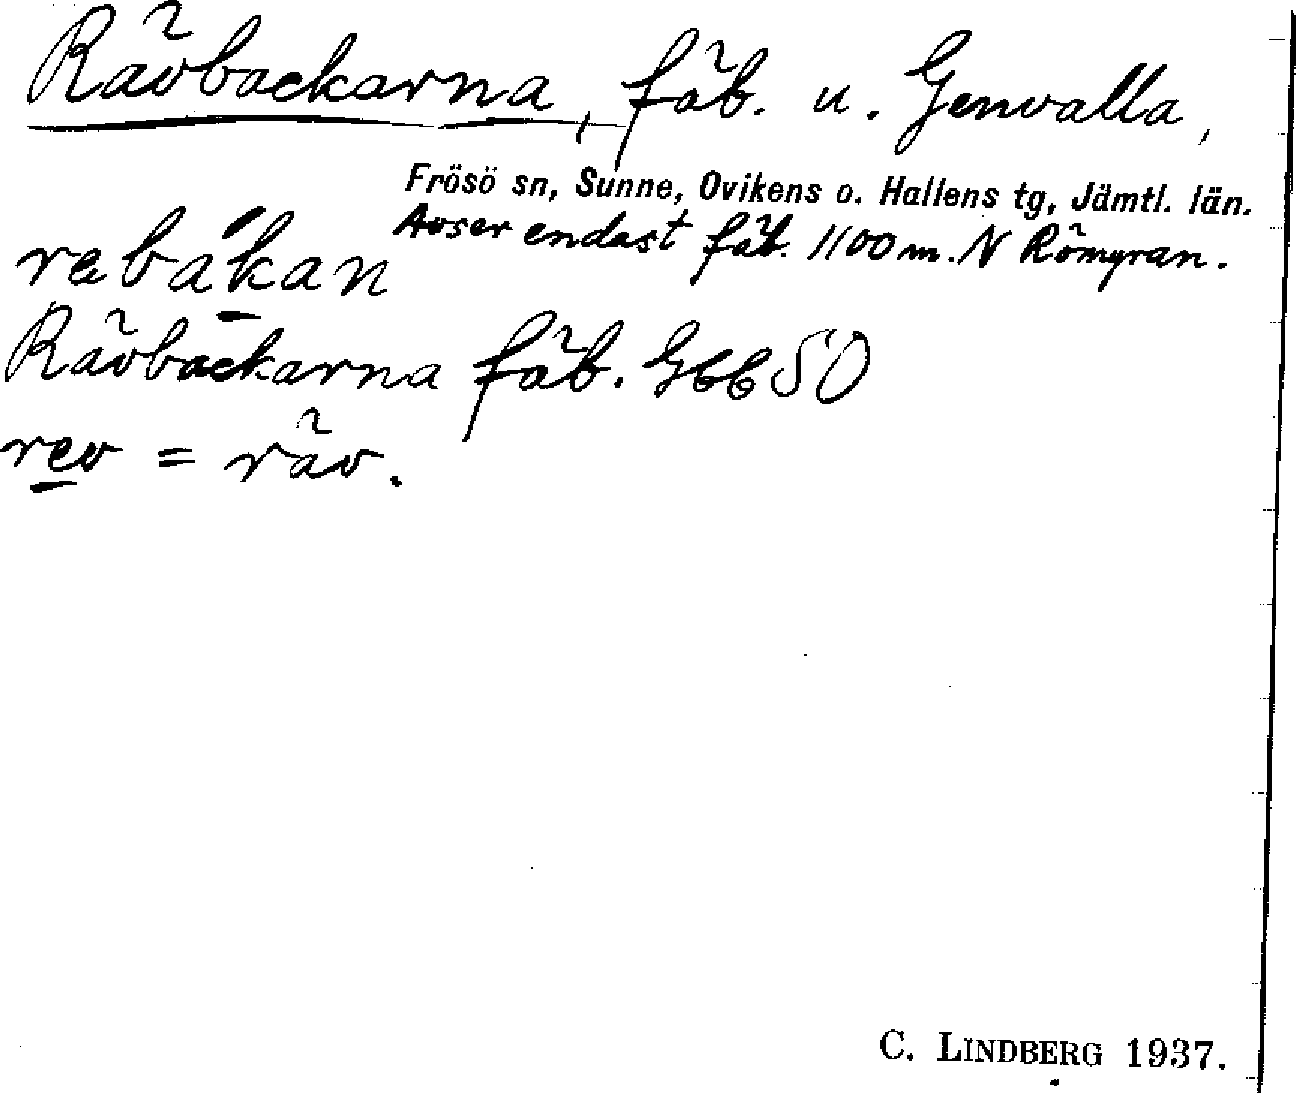 Rävbackarna, fäb. u. Genvalla,
Frösö sn, Sunne, Ovikens o. Hallens tg, Jämtl. län.
Avser endast fäb. 1100 m. N Römyran.
rebákan
Rävbackarna fäb. Gbb SO
rev = räv.
C. LINDBERG 1937.